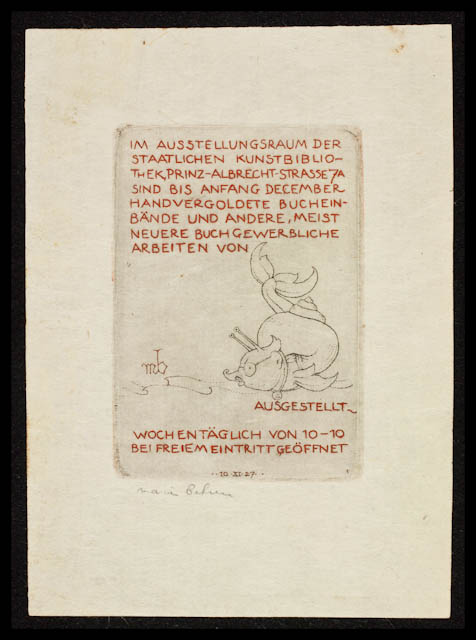 IM AUSSTELLUNGSRAUM DER
STAATLICHEN KUNSTBIBLIO-
THEK, PRINZ-ALBRECHT-STRASSE 7A
SIND BIS ANFANG DECEMBER
HANDVERGOLDETE BUCHEIN-
BÄNDE UND ANDERE, MEIST
NEUERE BUCHGEWERBLICHE
ARBEITEN VON
mb
AUSGESTELLT
WOCHENTÄGLICH VON 10-10
BEI FREIEM EINTRITT GEÖFFNET
··10·XI·27··